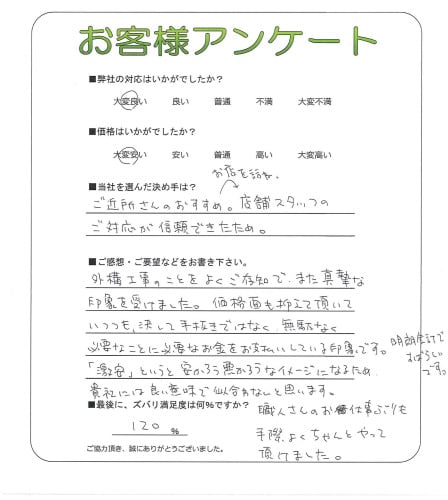 お客様アンケート
■弊社の対応はいかがでしたか？
大変良い 良い 普通 不満 大変不満
■価格はいかがでしたか？
大変安い 安い 普通 高い 大変高い
お店を訪ね、
■当社を選んだ決め手は？
ご近所さんのおすすめ。店舗スタッフの
ご対応が信頼できたため。
■ご感想・ご要望などをお書き下さい。
外構工事のことをよくご存知で、また真摯な
印象を受けました。価格面も抑えて頂いて
いつつも、決して手抜きではなく、無駄なく
必要なことに必要なお金をお支払いしている印象です。
明朗会計で
すばらしい
です。
「激安」というと安かろう悪かろうなイメージになるため、
貴社には良い意味で似合わないと思います。
■最後に、ズバリ満足度は何％ですか？
120 ％
職人さんのお仕事ぶりも
手際よくちゃんとやって
頂けました。
ご協力頂き、誠にありがとうございました。